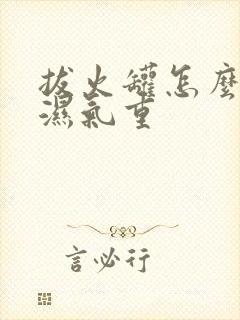 拔火罐怎麼
濕氣重
言必行